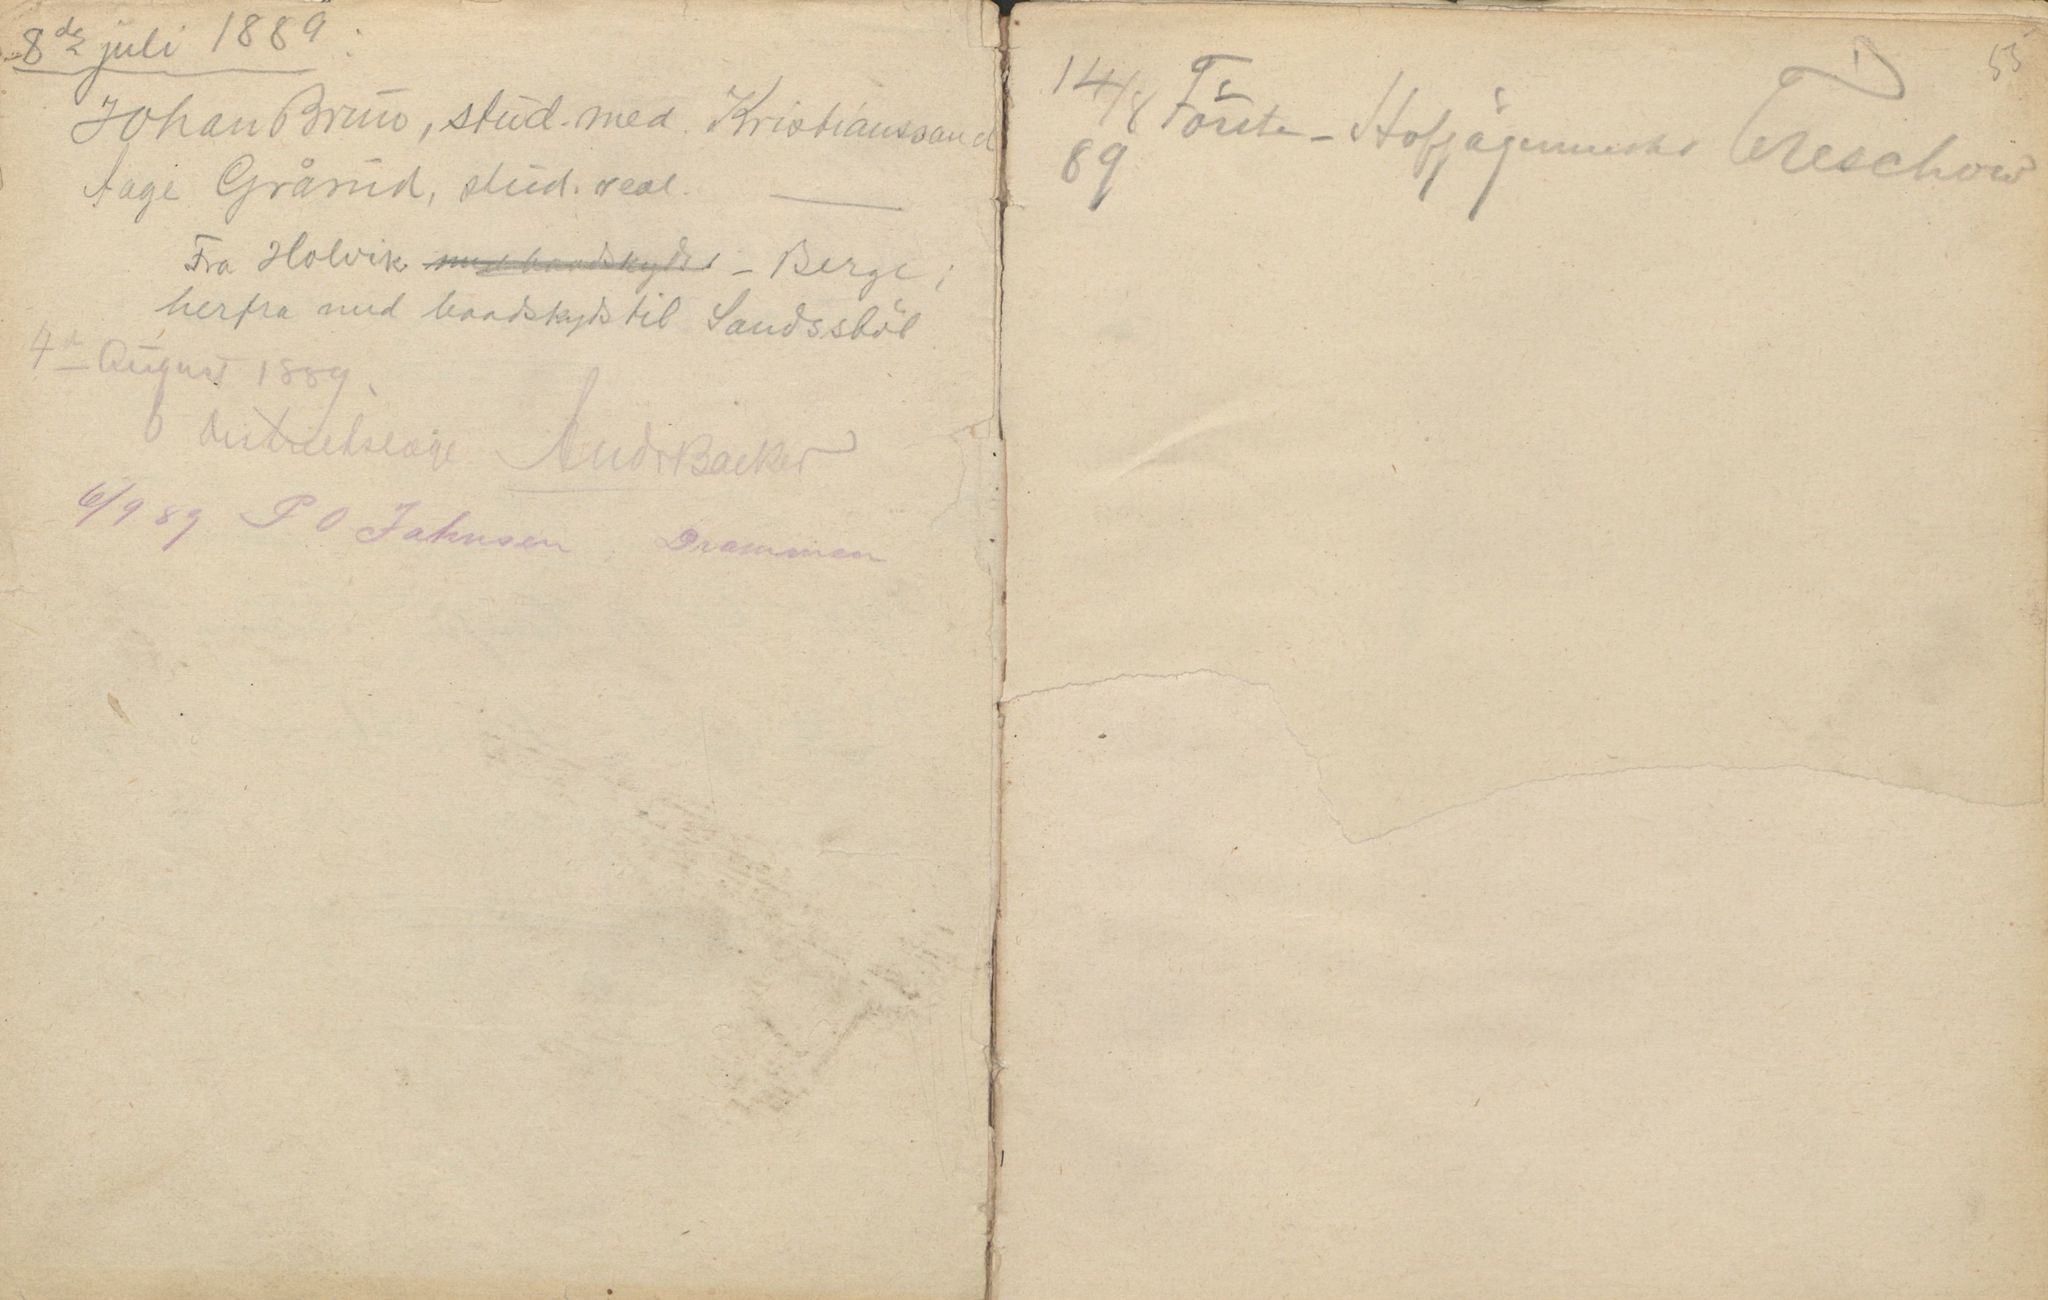 8de juli 1889:
Johan Bruun, stud. med. Kristianssand
Aage Grårud, stud. real. ———
Fra Holvik med baadskyds - Berge;
herfra med baadskyds til Sandsstöl
4de August 1889.
Andr Backer
6/9 89 P O Jahnsen Drammen
55
14/8 Förste - Hofjägermester Treschow
89